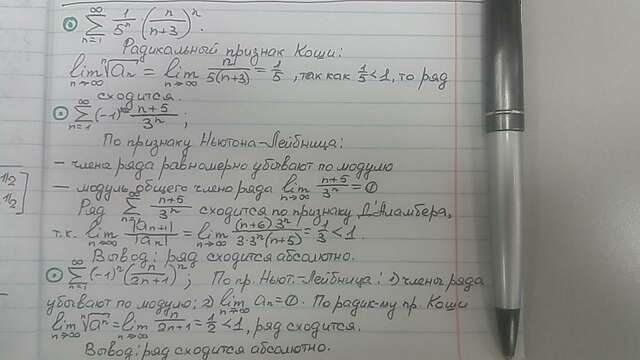 ∑_{n=1}^{∞} 1/5^n · (n/(n+3))^n.
Радикальный признак Коши:
lim_{n→∞} ⁿ√a_n = lim_{n→∞} n/(5(n+3)) = 1/5, так как 1/5 < 1, то ряд
сходится.
∑_{n=1}^{∞} (-1)^n (n+5)/3^n;
По признаку Ньютона-Лейбница:
– члены ряда равномерно убывают по модулю
– модуль общего члена ряда lim_{n→∞} (n+5)/3^n = 0
Ряд ∑_{n=1}^{∞} (n+5)/3^n сходится по признаку Д'Аламбера,
т.к. lim_{n→∞} |a_{n+1}|/|a_n| = lim_{n→∞} (n+6)3^n/(3·3^n(n+5)) = 1/3 < 1.
Вывод: ряд сходится абсолютно.
∑_{n=1}^{∞} (-1)^n (n/(2n+1))^n; По пр. Ньют.-Лейбница: 1) члены ряда
убывают по модулю; 2) lim_{n→∞} a_n = 0. По радик-му пр. Коши
lim_{n→∞} ⁿ√a_n = lim_{n→∞} n/(2n+1) = 1/2 < 1, ряд сходится.
Вывод: ряд сходится абсолютно.